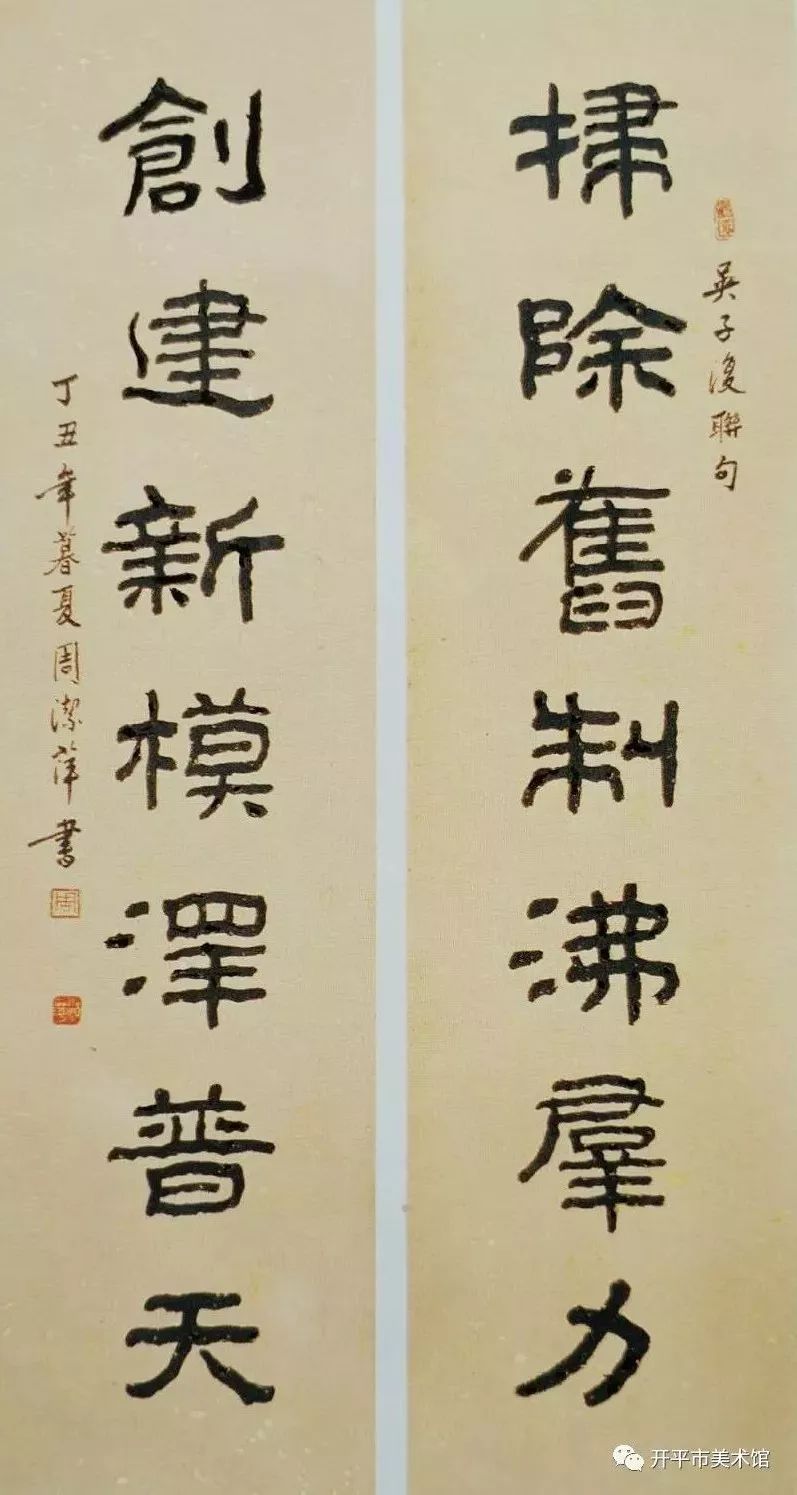 吳子復聯句
掃除舊制沸羣力
創建新模澤普天
丁丑年暮夏周潔萍書
周
开平市美术馆